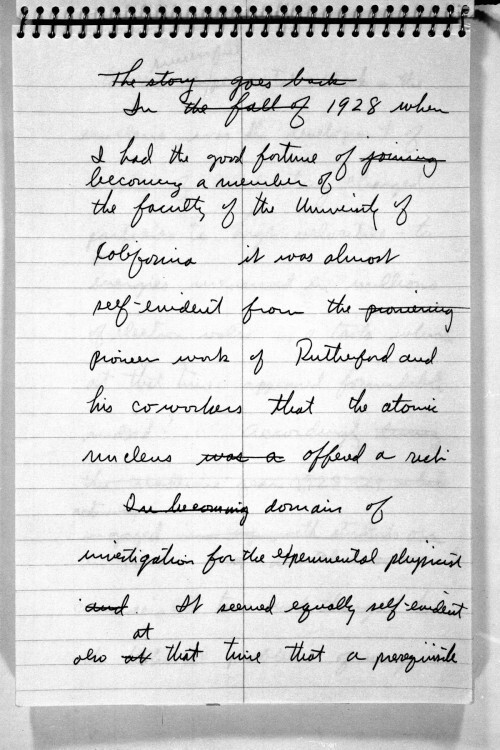 The story goes back
In the fall of 1928 when
I had the good fortune of joining
becoming a member of
the faculty of the University of
California it was almost
self-evident from the pionering
pioneer work of Rutherford and
his coworkers that the atomic
nucleus was a offered a rich
In becoming domain of
investigation for the experimental physicist
and. It seemed equally self-evident
at
also at that time that a prerequisite